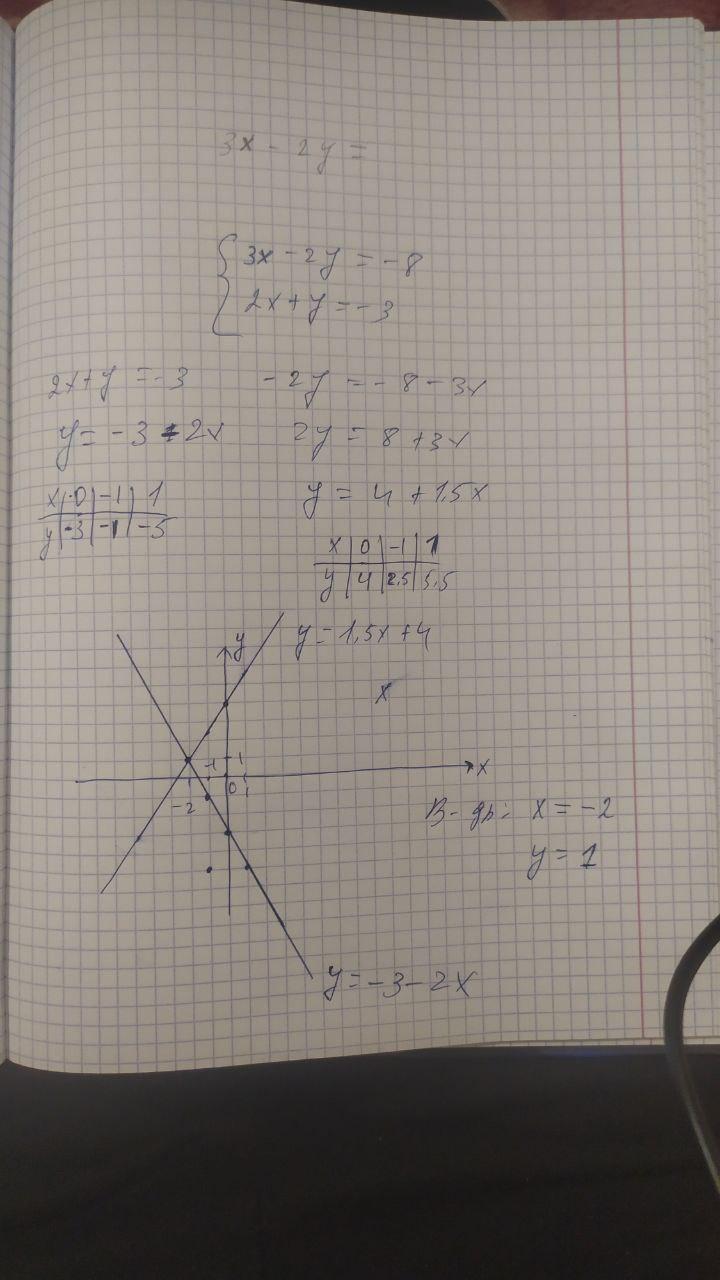 3x - 2y =
3x - 2y = -8
2x + y = -3
2x + y = -3
y = -3 - 2x
x | 0 | -1 | 1
y | -3 | -1 | -5
-2y = -8 - 3x
2y = 8 + 3x
y = 4 + 1,5x
x | 0 | -1 | 1
y | 4 | 2,5 | 5,5
y = 1,5x + 4
y
x
-1 1
x
0 1
-2
В-дь: x = -2
y = 1
y = -3 - 2x